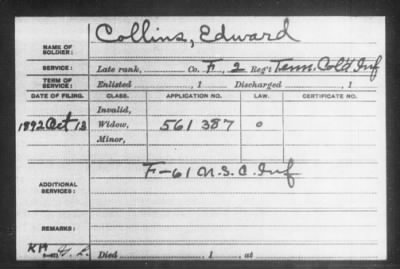 NAME OF SOLDIER: Collins, Edward
SERVICE: Late rank, Co. F, 2 Reg't Tenn. Col'd Inf
TERM OF SERVICE: Enlisted , 1 Discharged , 1
DATE OF FILING. CLASS. APPLICATION NO. LAW. CERTIFICATE NO.
Invalid,
1892 Oct 13 Widow, 561387 o
Minor,
F-61 U.S.C. Inf
ADDITIONAL SERVICES:
REMARKS:
Died , 1 , at